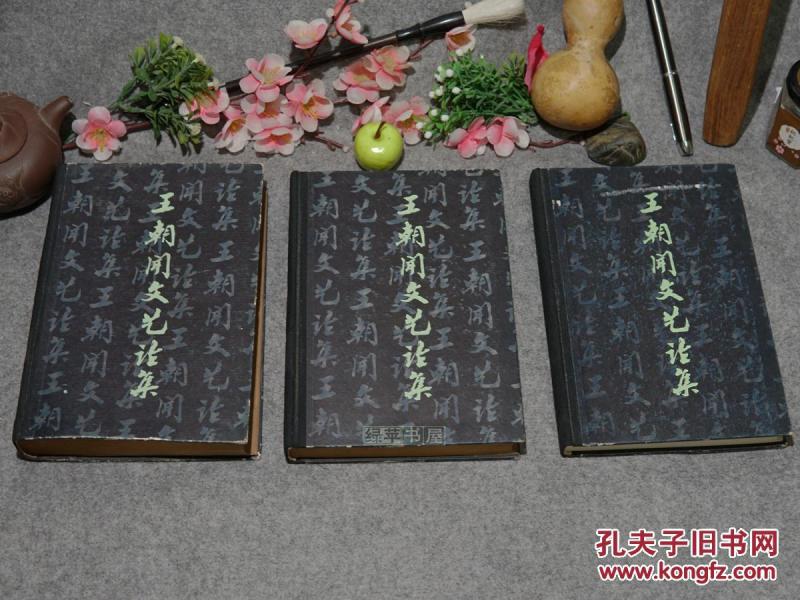 王朝闻文艺论集
王朝闻文艺论集
王朝闻文艺论集
绿苹书屋
孔夫子旧书网
www.kongfz.com